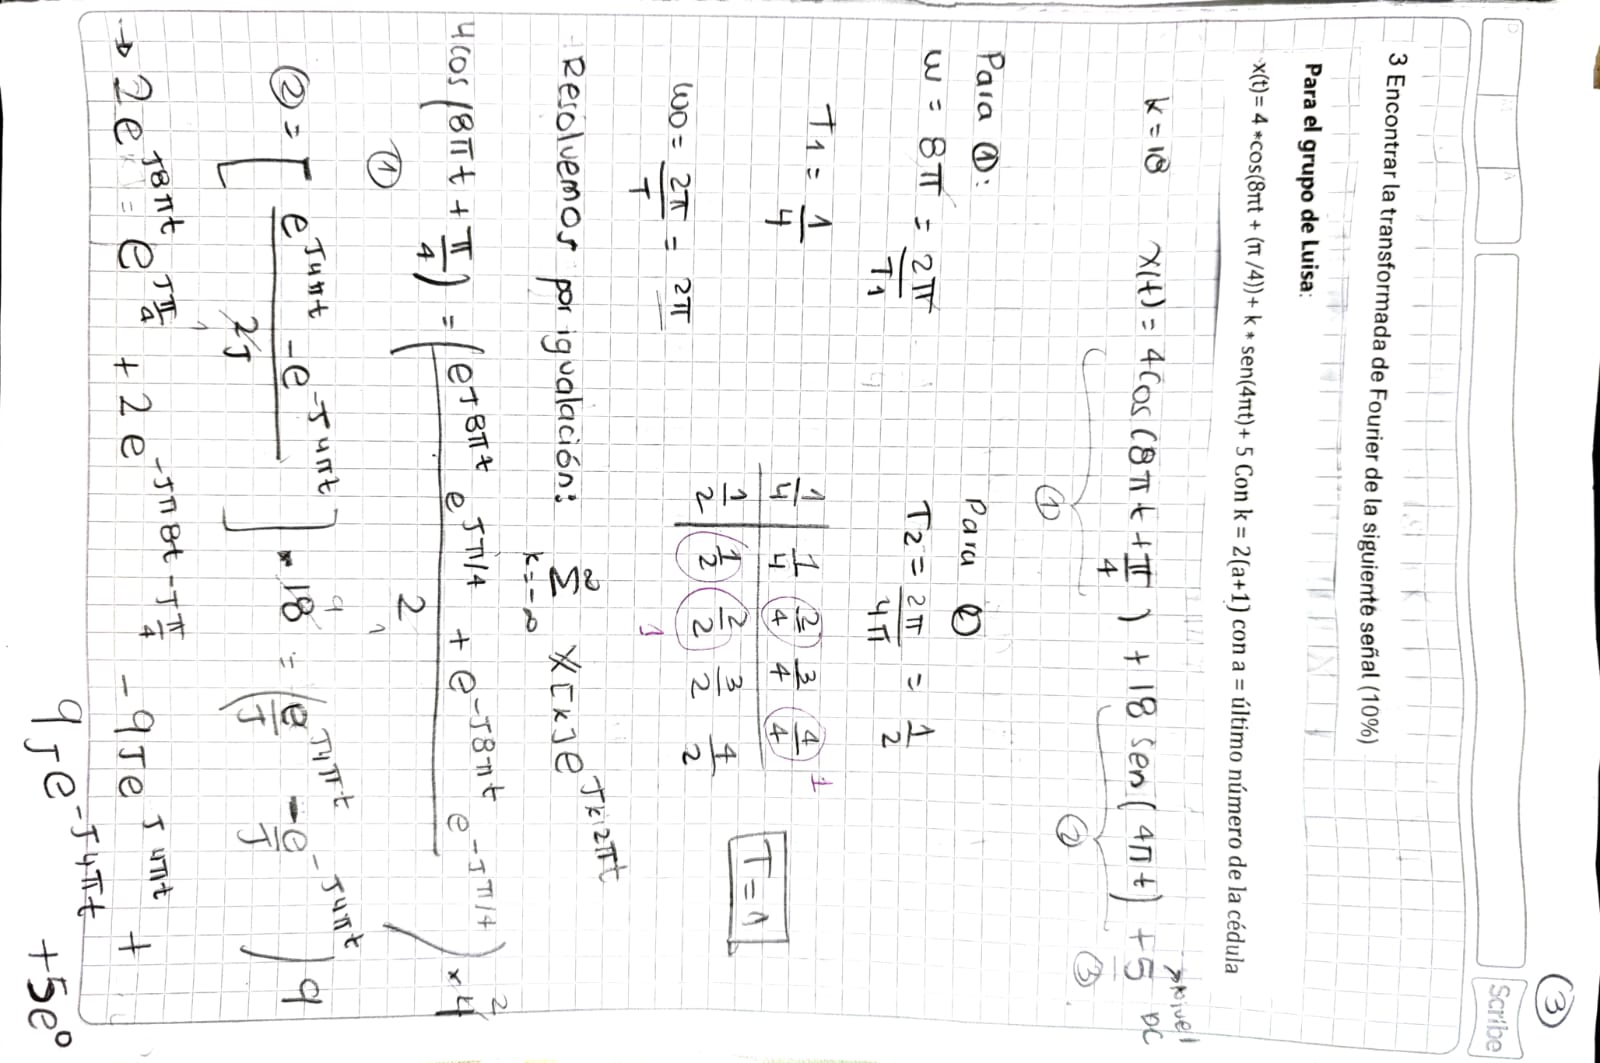 3
Scribe
3 Encontrar la transformada de Fourier de la siguiente señal (10%)
Para el grupo de Luisa:
x(t)= 4 *cos(8πt + (π /4)) + k * sen(4πt)+ 5 Con k = 2(a+1) con a = último número de la cédula
k = 18 x(t) = 4cos(8πt + π/4) + 18 sen(4πt) + 5 → Nivel DC
① ② ③
Para ①: Para ②
w = 8π = 2π/T1 T2 = 2π/4π = 1/2
T1 = 1/4
1/4 | 1/4 2/4 3/4 4/4 1
1/2 | 1/2 2/2 3/2 4/2 T = 1
1
wo = 2π/T = 2π
Resolvemos por igualación: ∞Σk=-∞ X[k]e^Jk2πt
4cos(8πt + π/4) = (e^J8πt e^Jπ/4 + e^-J8πt e^-Jπ/4 / 2) × 4 2
① 1
② = [e^J4πt - e^-J4πt / 2J] * 18 9 = (e^J4πt/J - e^-J4πt/J) 9
→ 2e^J8πt e^Jπ/4 + 2e^-Jπ8t -Jπ/4 - 9Je^J4πt +
9Je^-J4πt + 5e^0